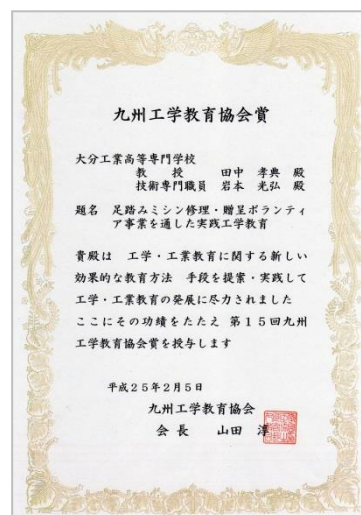 九州工学教育協会賞
大分工業高等専門学校
教 授 田中 孝典 殿
技術専門職員 岩本 光弘 殿
題名 足踏みミシン修理・贈呈ボランティ
ア事業を通した実践工学教育
貴殿は 工学・工業教育に関する新しい
効果的な教育方法 手段を提案・実践して
工学・工業教育の発展に尽力されました
ここにその功績をたたえ 第15回九州
工学教育協会賞を授与します
平成25年2月5日
九州工学教育協会
会長 山田 淳